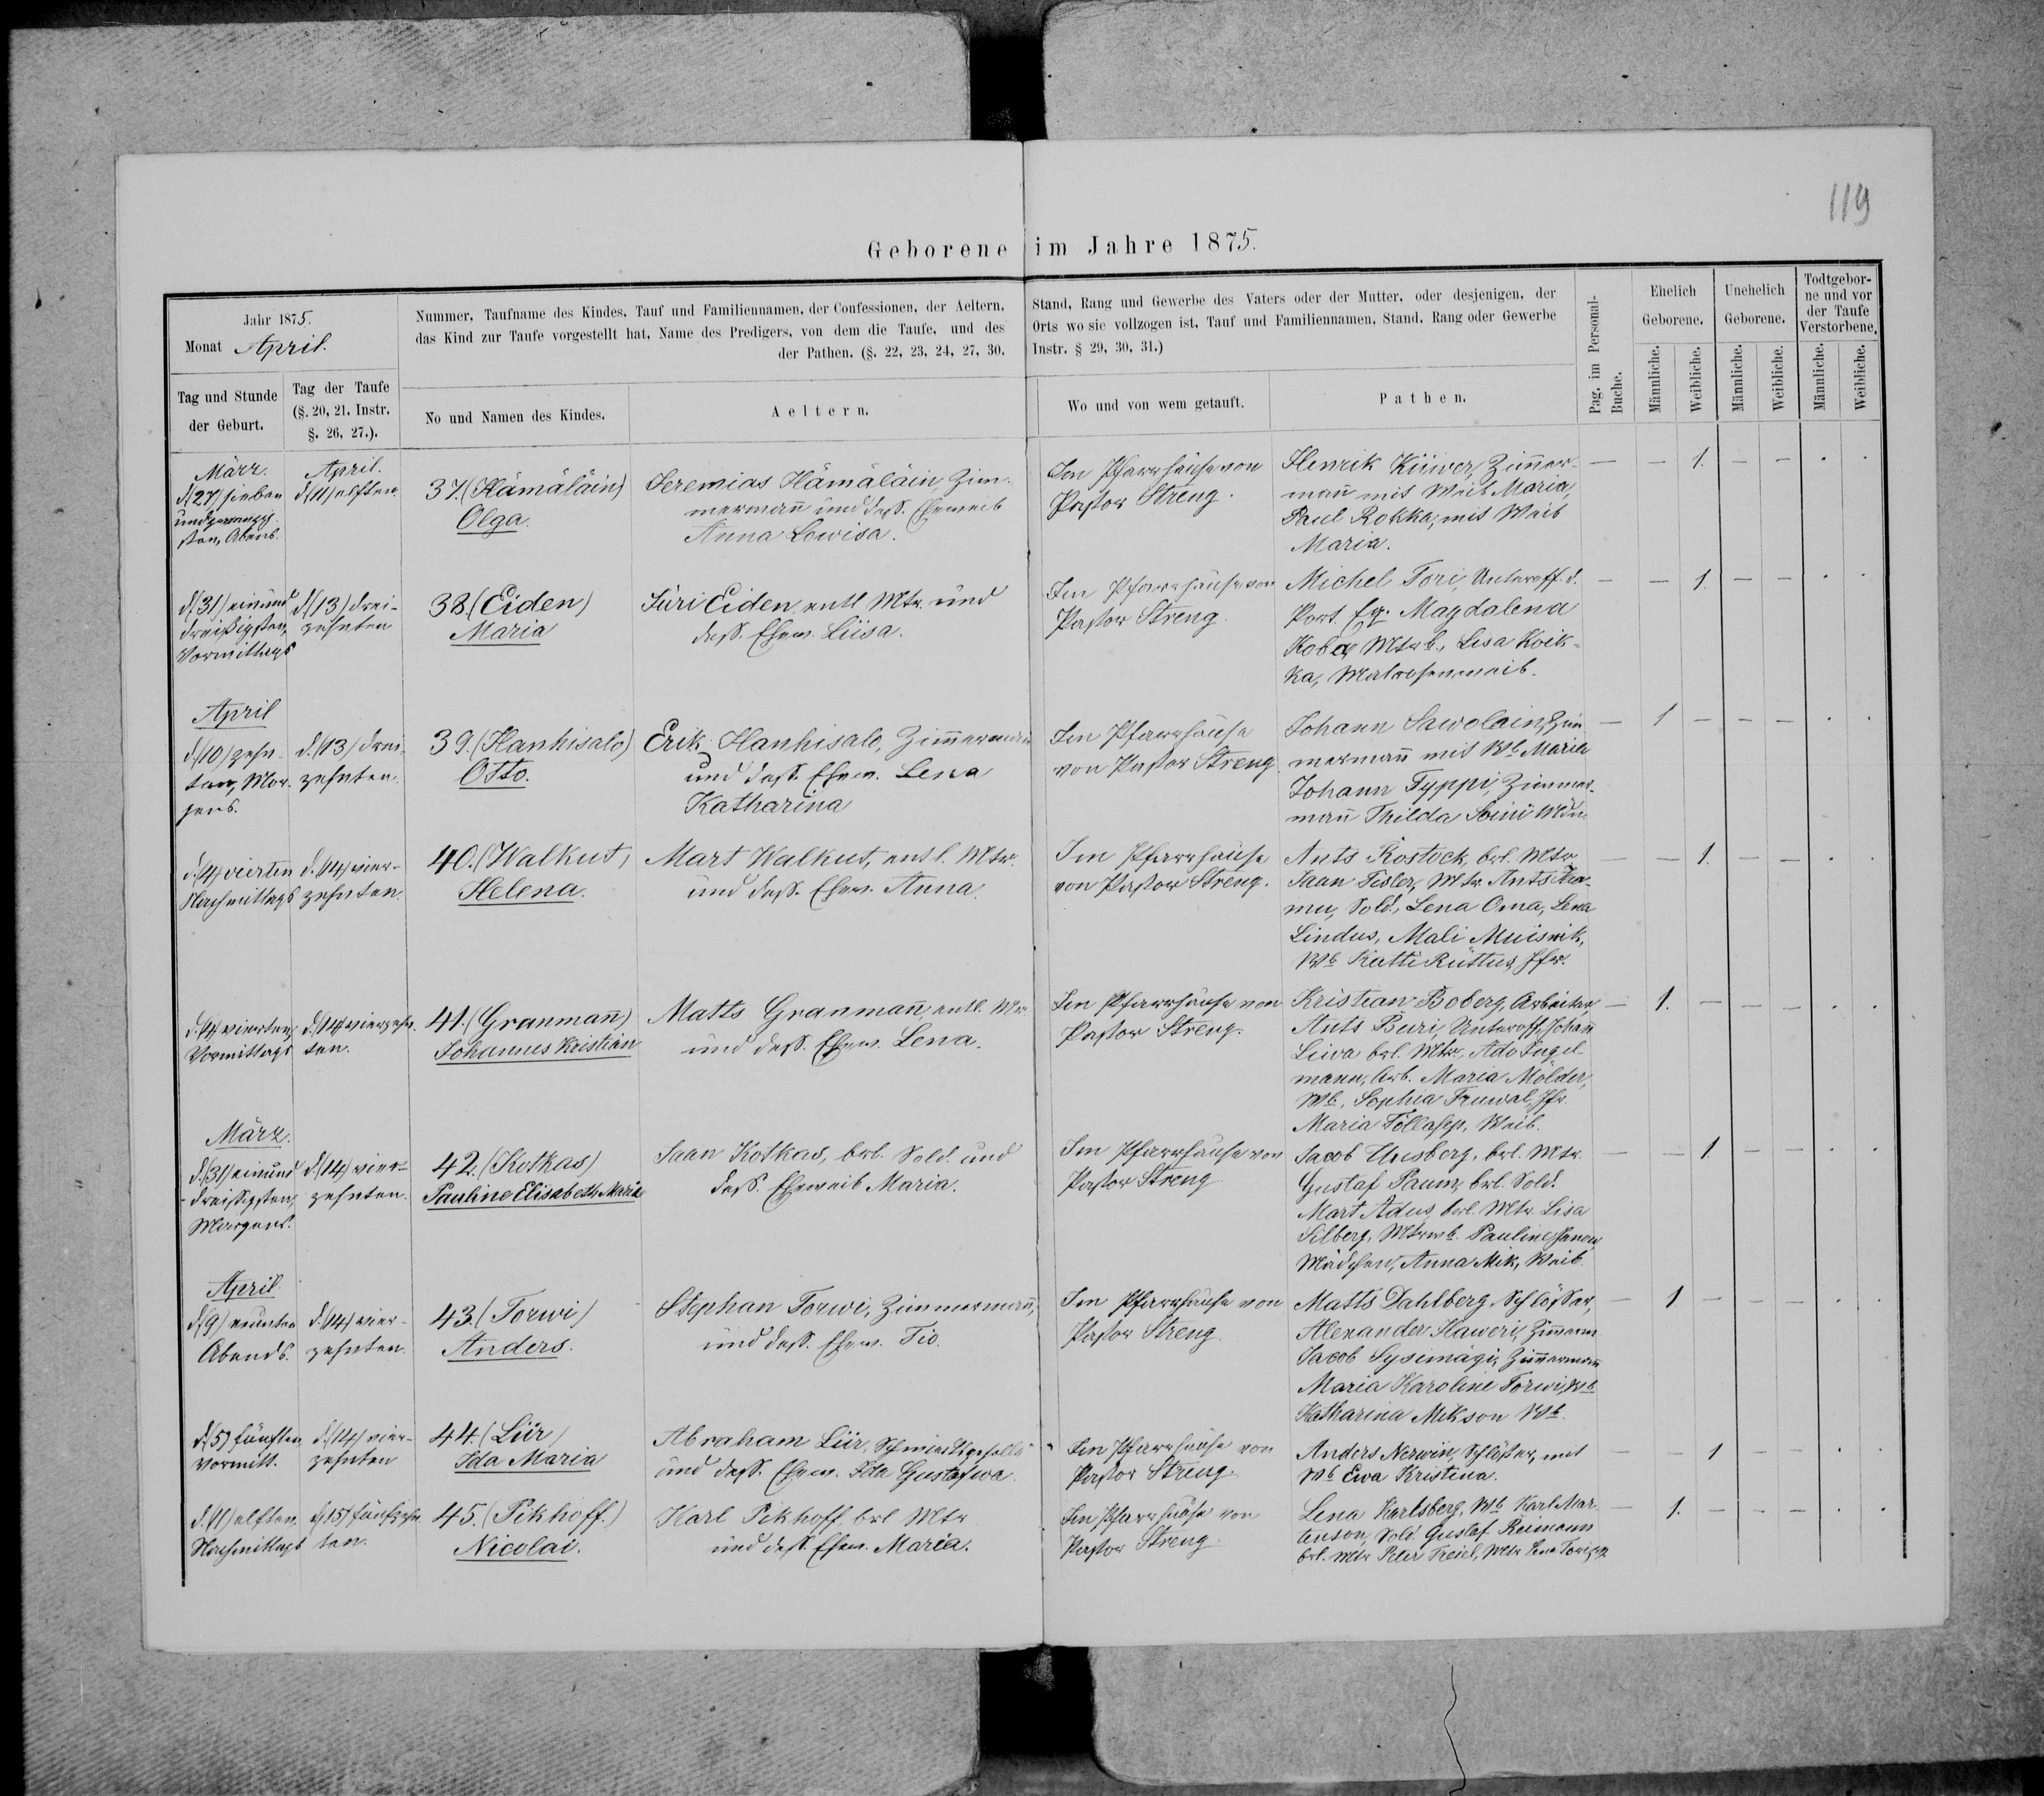 119
Geborene im Jahre 1875.
Jahr 1875.
Monat April.
Nummer, Taufname des Kindes, Tauf und Familiennamen, der Confessionen, der Aeltern, Stand, Rang und Gewerbe des Vaters oder der Mutter, oder desjenigen, der
das Kind zur Taufe vorgestellt hat, Name des Predigers, von dem die Taufe, und des Orts wo sie vollzogen ist, Tauf und Familiennamen, Stand, Rang oder Gewerbe
der Pathen. (§. 22, 23, 24, 27, 30. Instr. § 29, 30, 31.)
Tag und Stunde
der Geburt.
Tag der Taufe
(§. 20, 21. Instr.
§. 26, 27.).
No und Namen des Kindes.
Aeltern.
Wo und von wem getauft.
Pathen.
Pag. im Personal-
Buche.
Ehelich
Geborene.
Unehelich
Geborene.
Todtgebor-
ne und vor
der Taufe
Verstorbene.
Männliche.
Weibliche.
Männliche.
Weibliche.
Männliche.
Weibliche.
März.
d. (27) sieben
undzwanzig-
sten, Abens.
April.
d. (11) elften.
37. (Hämäläin)
Olga.
Jeremias Hämäläin, Zim-
mermañ und dess. Eheweib
Anna Lowisa.
Im Pfarrhause von
Pastor Streng.
Henrik Küwer, Zim̃er-
mañ mit Weib Maria,
Paul Rokka, mit Weib
Maria.
— — 1. — — . .
d. (31) einund
dreißigsten,
Vormittags
d. (13) drei-
zehnten
38. (Eiden)
Maria
Jüri Eiden, entl. Mtr. und
dess. Ehew. Liisa.
Im Pfarrhause von
Pastor Streng.
Michel Tori, Unteroff. d.
Port. Eq. Magdalena
Koba, Mtrwb., Lisa Koik-
ka, Matrosenweib.
— — 1. — — . .
April
d. (10) zehn-
ten, Mor-
gens.
d. (13) drei-
zehnten.
39. (Hanhisalo)
Otto.
Erik Hanhisalo, Zim̃ermañ
und dess. Ehew. Lena
Katharina
Im Pfarrhause
von Pastor Streng.
Johann Sawolain, Zim
mermañ mit Wb Maria
Johann Typpi, Zimmer-
mañ Thilda Soini
— 1 — — — . .
d. (4) vierten
Nachmittags
d. (14) vier-
zehnten.
40. (Walkut)
Helena.
Mart Walkut, entl. Mtr.
und dess. Ehew. Anna.
Im Pfarrhause
von Pastor Streng.
Ants Rostock, brl. Mtr.
Jaan Tisler, Mtr. Ants
mu, Sold., Lena Oma, Lena
Lindus, Mali Muiswik,
Wb Katti Rüttus, Jfr.
— — 1. — — . .
d. (4) vierten,
Vormittags
d. (14) vierzehn-
ten.
41. (Granmañ)
Johannes Kristian
Matts Granmañ, entl. Mtr
und dess. Ehew. Lena.
Im Pfarrhause von
Pastor Streng.
Kristian Boberg, Arbeiter,
Ants Buri, Unteroff. Johan
Leiwa brl. Mtr., Ado Engel-
mann, Arb. Maria Mölder,
Wb., Sophia Truwal, Jfr.
Maria Töllasep, Weib.
— 1. — — — . .
März.
d. (31) einund
dreissigsten,
Morgens.
d. (14) vier-
zehnten.
42. (Kotkas)
Pauline Elisabeth Maria
Jaan Kotkas, brl. Sold. und
dess. Eheweib Maria.
Im Pfarrhause von
Pastor Streng
Jacob Unsberg, brl. Mtr.
Gustaf Paum, brl. Sold.
Mart Adus, brl. Mtr. Lisa
Silberg, Mtrwb. Pauline
Mädchen, Anna Mik, Weib.
— — 1 — — . .
April.
d. (9) neunten
Abends.
d. (14) vier-
zehnten.
43. (Torwi)
Anders.
Stephan Torwi, Zimmermañ,
und dess. Ehew. Tio.
Im Pfarrhause von
Pastor Streng.
Matts Dahlberg, Schlosser,
Alexander Haweri, Zimerm
Jacob Sysimägi, Zim̃ermañ
Maria Karoline Torwi, Wb
Katharina Mikson Wb.
— 1 — — — . .
d. (5) fünften,
vormitt.
d. (14) vier-
zehnten
44. (Liir)
Ida Maria
Abraham Liir, Schmiedegeselle
und dess. Ehew. Ida Gustafwa.
Im Pfarrhause von
Pastor Streng.
Anders Nerwin, Schlosser, mit
Wb Ewa Kristina.
— 1 — — . .
d. (11) elften,
Nachmittags
d. (15) fünfzehn
ten.
45. (Pikhoff.)
Nicolai.
Karl Pikhoff, brl. Mtr
und dess. Ehew. Maria.
Im Pfarrhause von
Pastor Streng.
Lena Karlsberg, Wb Karl Mar-
tenson, Sold. Gustaf Reimann
brl. Mtr Peter Treiel, Mtr Lena
— 1. — — — . .